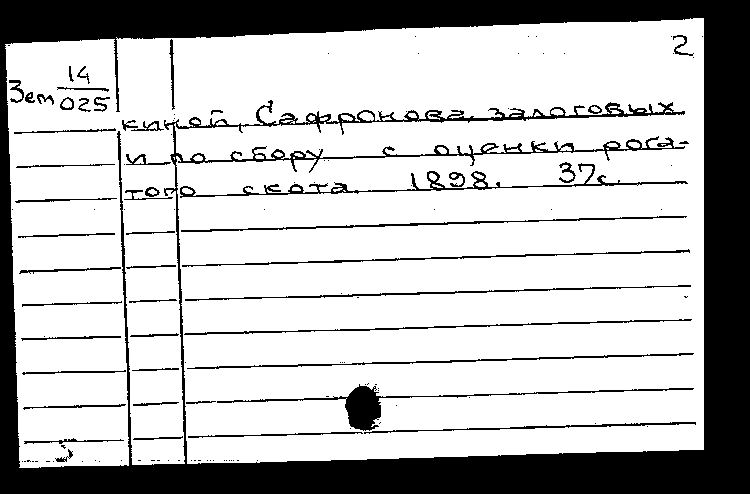 2
Зем 14/025
киной, Сафронова, залоговых
и по сбору с оценки рога-
того скота. 1898. 37с.